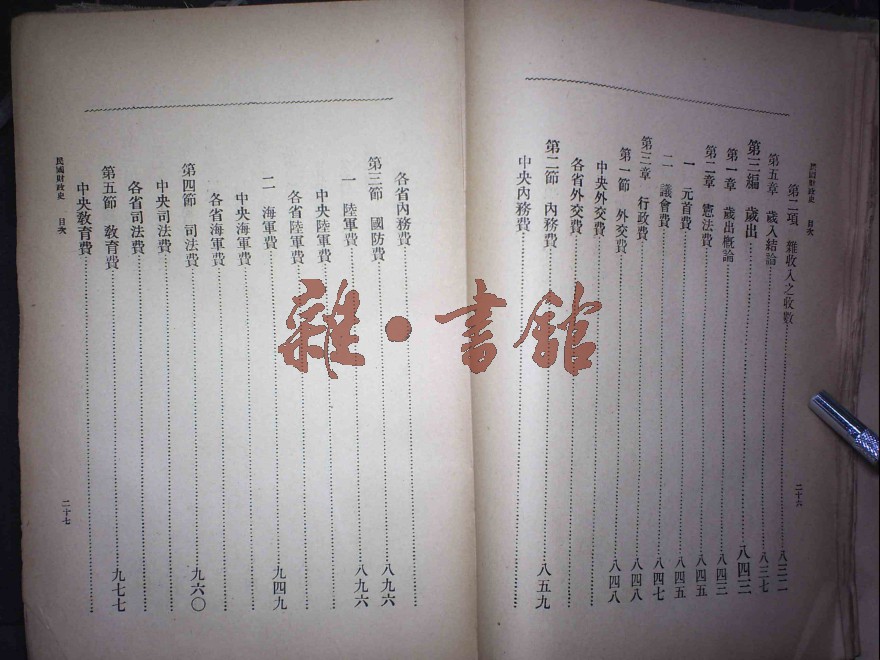 民國財政史 目次
第二項 雜收入之收數 八三二
第五章 歲入結論 八三七
第三編 歲出 八四三
第一章 歲出概論 八四三
第二章 憲法費 八四五
一 元首費 八四五
二 議會費 八四七
第三章 行政費 八四八
第一節 外交費 八四八
中央外交費
各省外交費
第二節 內務費 八五九
中央內務費
二十六
各省內務費
第三節 國防費 八九六
一 陸軍費 八九六
中央陸軍費
各省陸軍費
二 海軍費 九四九
中央海軍費
各省海軍費
第四節 司法費 九六〇
中央司法費
各省司法費
第五節 教育費 九七七
中央教育費
民國財政史 目次
二十七
雜·書館